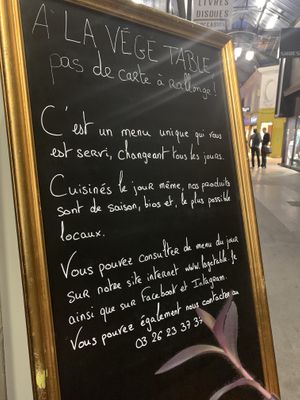 LIVRES
DISQUES
A LA VÉGE TABLE
pas de carte à rallonge !
C'est un menu unique qui vous
est servi, changeant tous les jours.
Cuisinés le jour même, nos produits
sont de saison, bios et, le plus possible
locaux.
Vous pouvez consulter de menu du jour
sur notre site internet www.lagetable.fr
ainsi que sur Facebook et Instagram.
Vous pouvez également nous contacter au
03 26 23 37 37